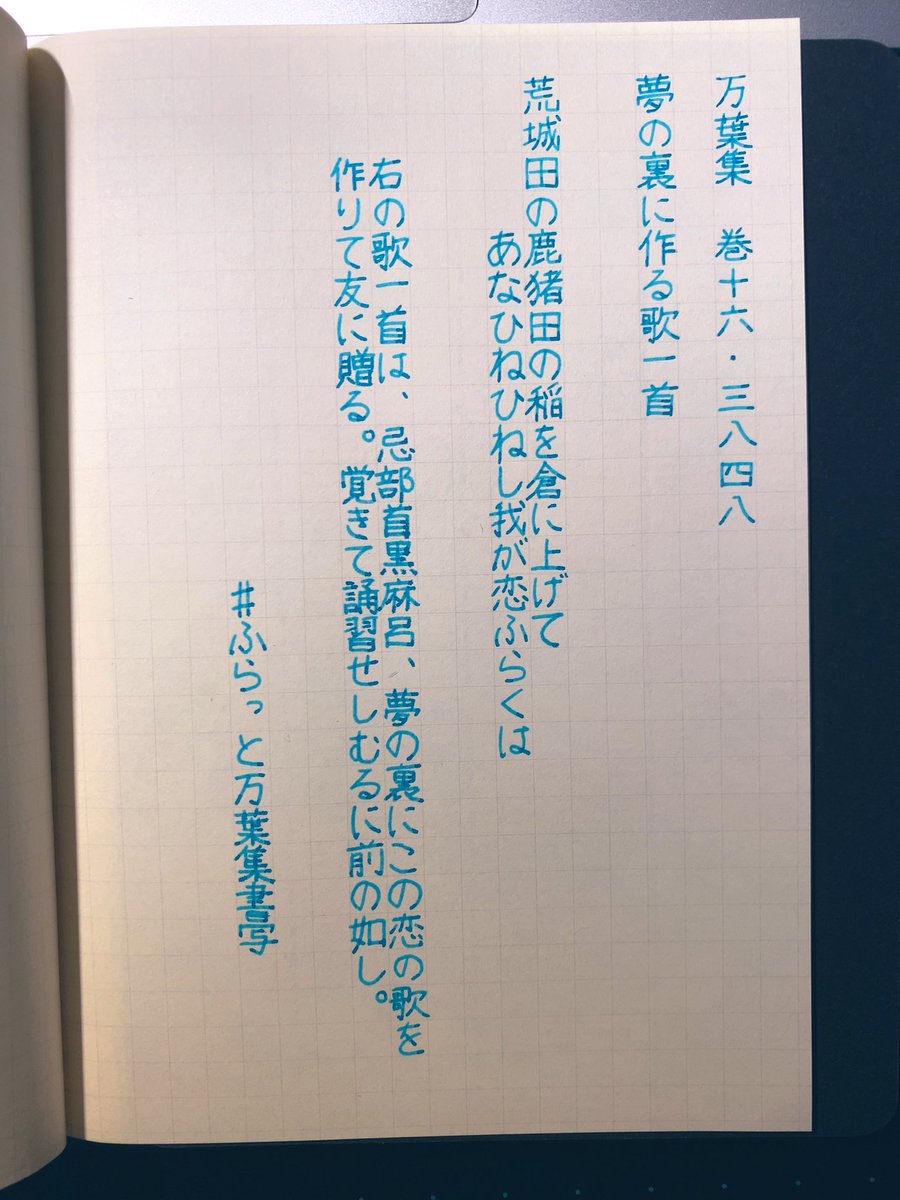 万葉集　巻十六・三八四八
夢の裏に作る歌一首
荒城田の鹿猪田の稲を倉に上げて
あなひねひねし我が恋ふらくは
右の歌一首は、忌部首黒麻呂、夢の裏にこの恋の歌を
作りて友に贈る。覚きて誦習せしむるに前の如し。
#ふらっと万葉集書写